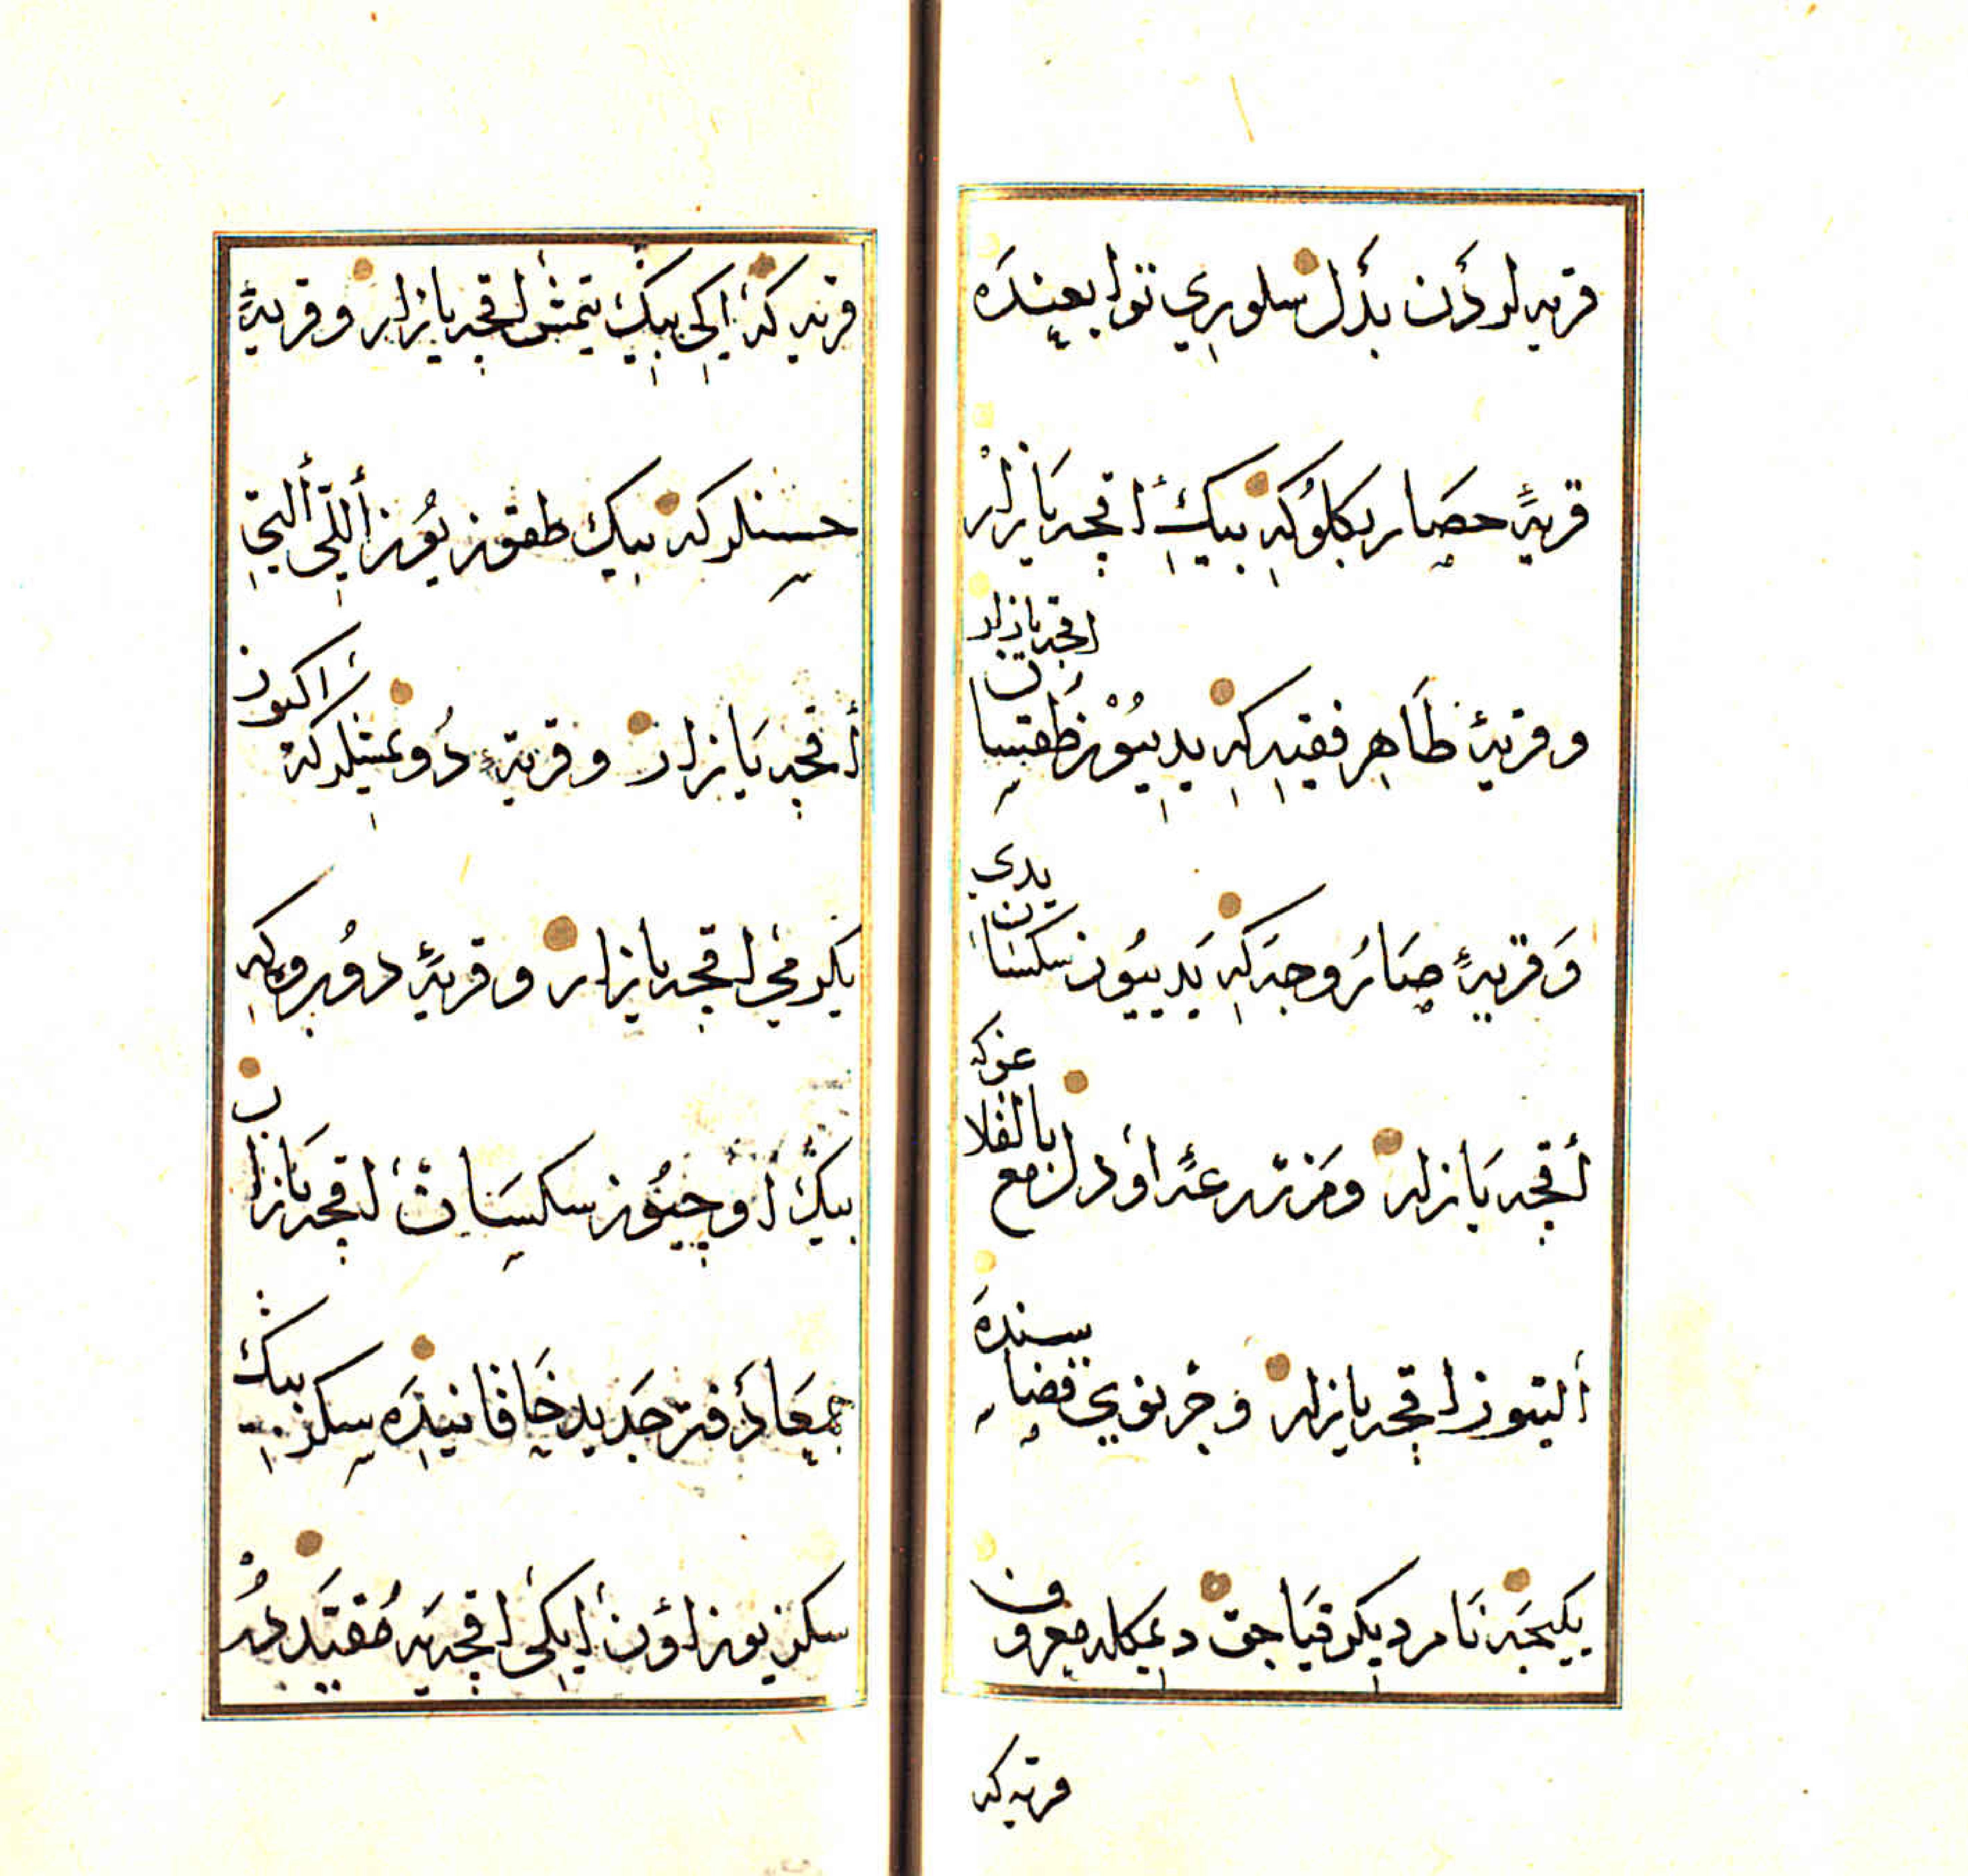 قریه لردن بدل سلوري توابعنده
قریهٔ حصار بكلو كه بیك اقچه یازار
وقریهٔ طاهر فقیه كه یدییوز طقسان اقچه یازلر
وقریهٔ صاروجه كه یدییوز سكسان یدی
اقچه یازلر ومزرعهٔ اودلر مع بالقلاغو كه
التیوز اقچه یازلر و خرنوي قضاسنده
یكیجه نام دیكر قیاجق دیمكله معروف
قریه كه
قریه كه ایكی بیك یتمش اقچه یازار وقریهٔ
حسنلر كه بیك طقوز یوز اللی التی
اقچه یازار وقریهٔ دوغمشلر كه اكیوز
یكرمی اقچه یازار وقریهٔ دوبرو كه
بیك اوچیوز سكسان اقچه یازار
جمعا دفتر جدید خاقانیده سكز بیك
سكز یوز اون ایكی اقچه یه مقیددر